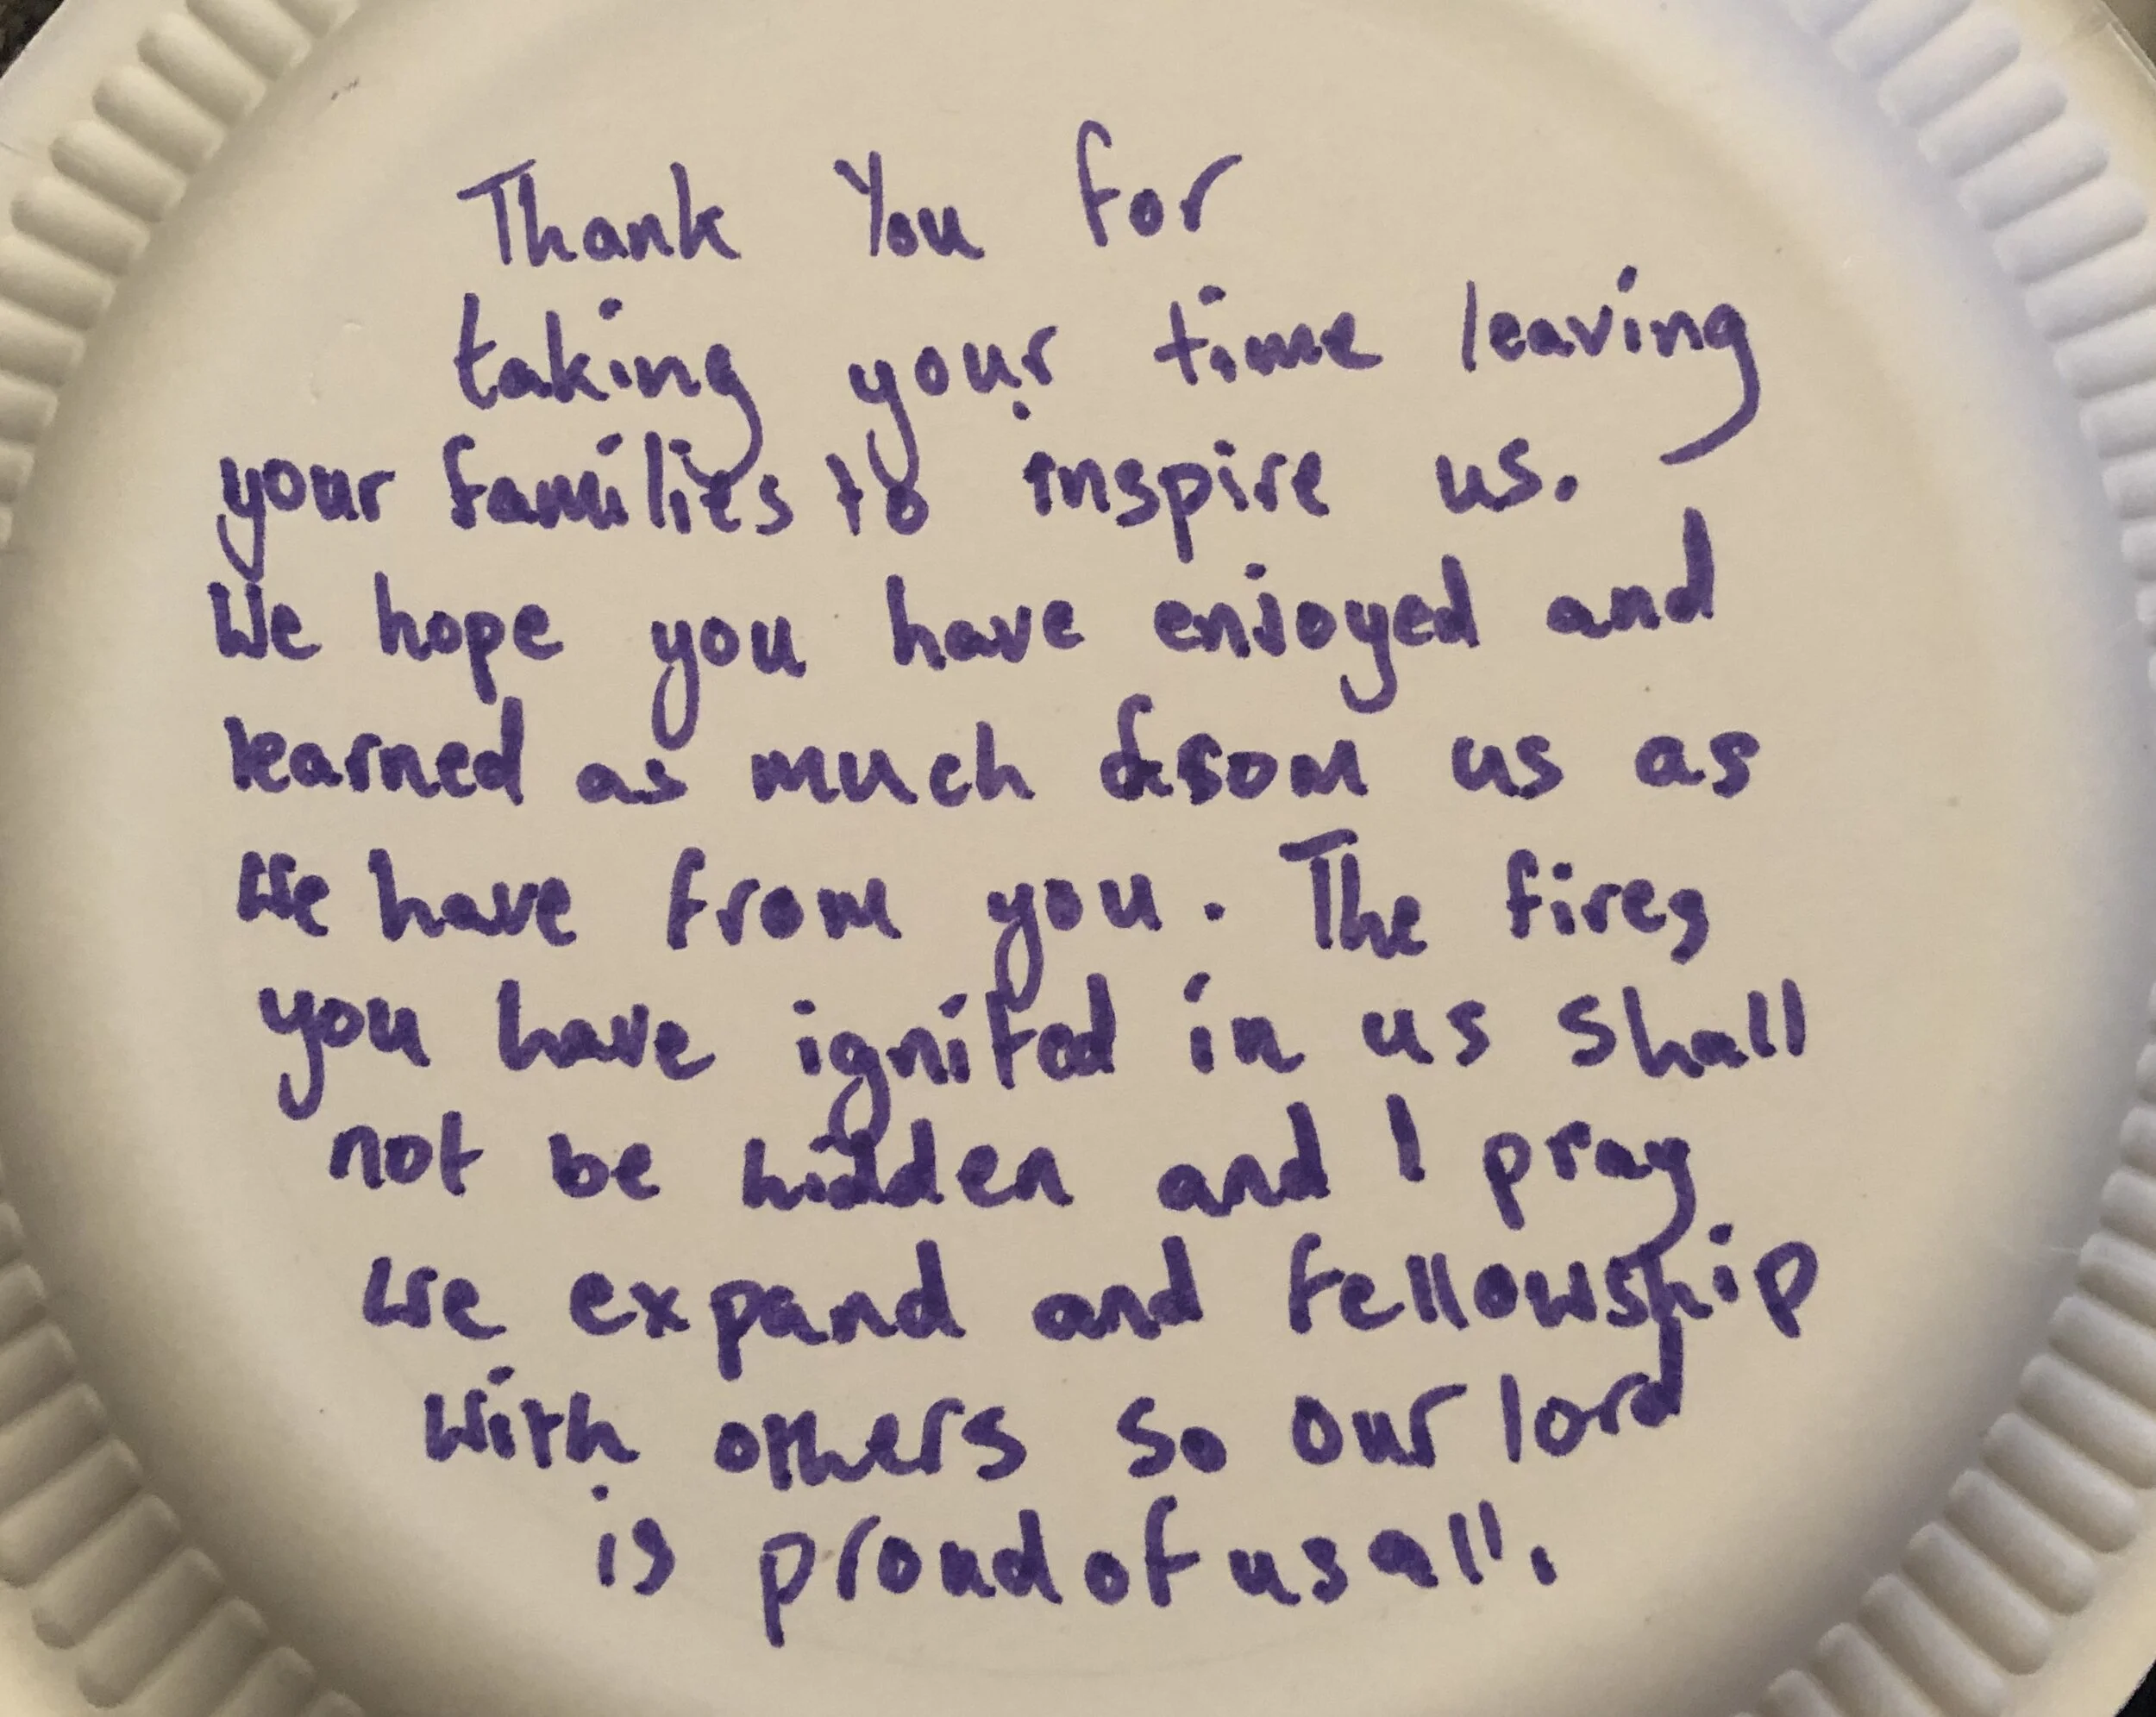 Thank You for
taking your time leaving
your families to inspire us.
We hope you have enjoyed and
learned as much from us as
We have from you. The fires
you have ignited in us shall
not be hidden and I pray
we expand and fellowship
with others so our lord
is proud of us all.